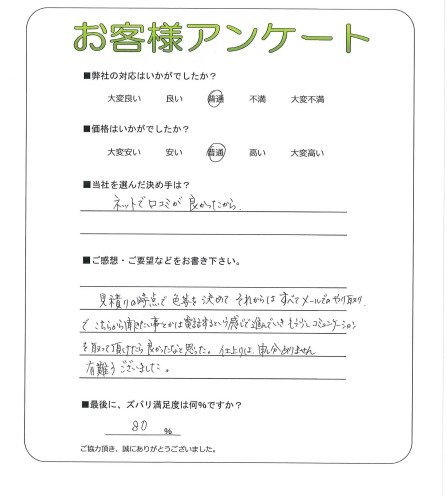 お客様アンケート
■弊社の対応はいかがでしたか？
大変良い 良い 普通 不満 大変不満
■価格はいかがでしたか？
大変安い 安い 普通 高い 大変高い
■当社を選んだ決め手は？
ネットで口コミが良かったから
■ご感想・ご要望などをお書き下さい。
見積りの時点で色等も決めて それからは すべてメールでのやり取り
で こちらから聞きたい事とかは電話するという感じで進んでいき もう少しコミュニケーション
を取って頂けたら良かったなと思った。仕上りは、申し分ありません
有難うございました。
■最後に、ズバリ満足度は何％ですか？
80 ％
ご協力頂き、誠にありがとうございました。